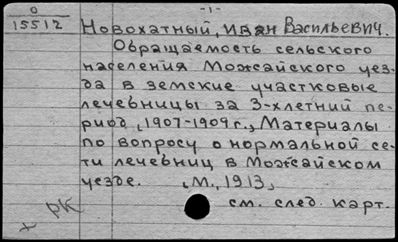 0
-1-
15512
Новохатный, Иван Васильевич.
Обращаемость сельского
населения Можайского уез-
да в земские участковые
лечебницы за 3-хлетний пе-
риод, 1907-1909 г., Материалы
по вопросу о нормальной се-
ти лечебниц в Можайском
уезде. М., 1913,
см. след. карт.
+ РК